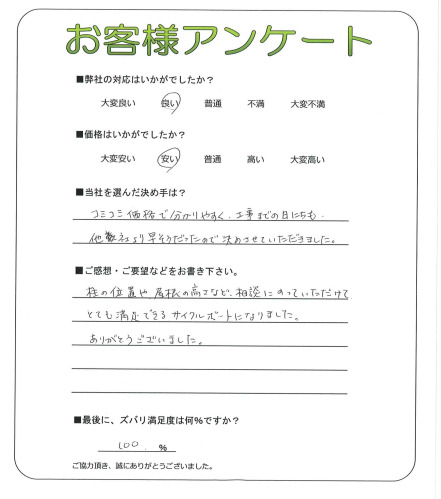 お客様アンケート
■弊社の対応はいかがでしたか？
大変良い 良い 普通 不満 大変不満
■価格はいかがでしたか？
大変安い 安い 普通 高い 大変高い
■当社を選んだ決め手は？
コミコミ価格で分かりやすく、工事までの日にちも
他数社より早そうだったので決めさせていただきました。
■ご感想・ご要望などをお書き下さい。
柱の位置や、屋根の高さなど、相談にのっていただけて
とても満足できるサイクルポートになりました。
ありがとうございました。
■最後に、ズバリ満足度は何％ですか？
100. %
ご協力頂き、誠にありがとうございました。